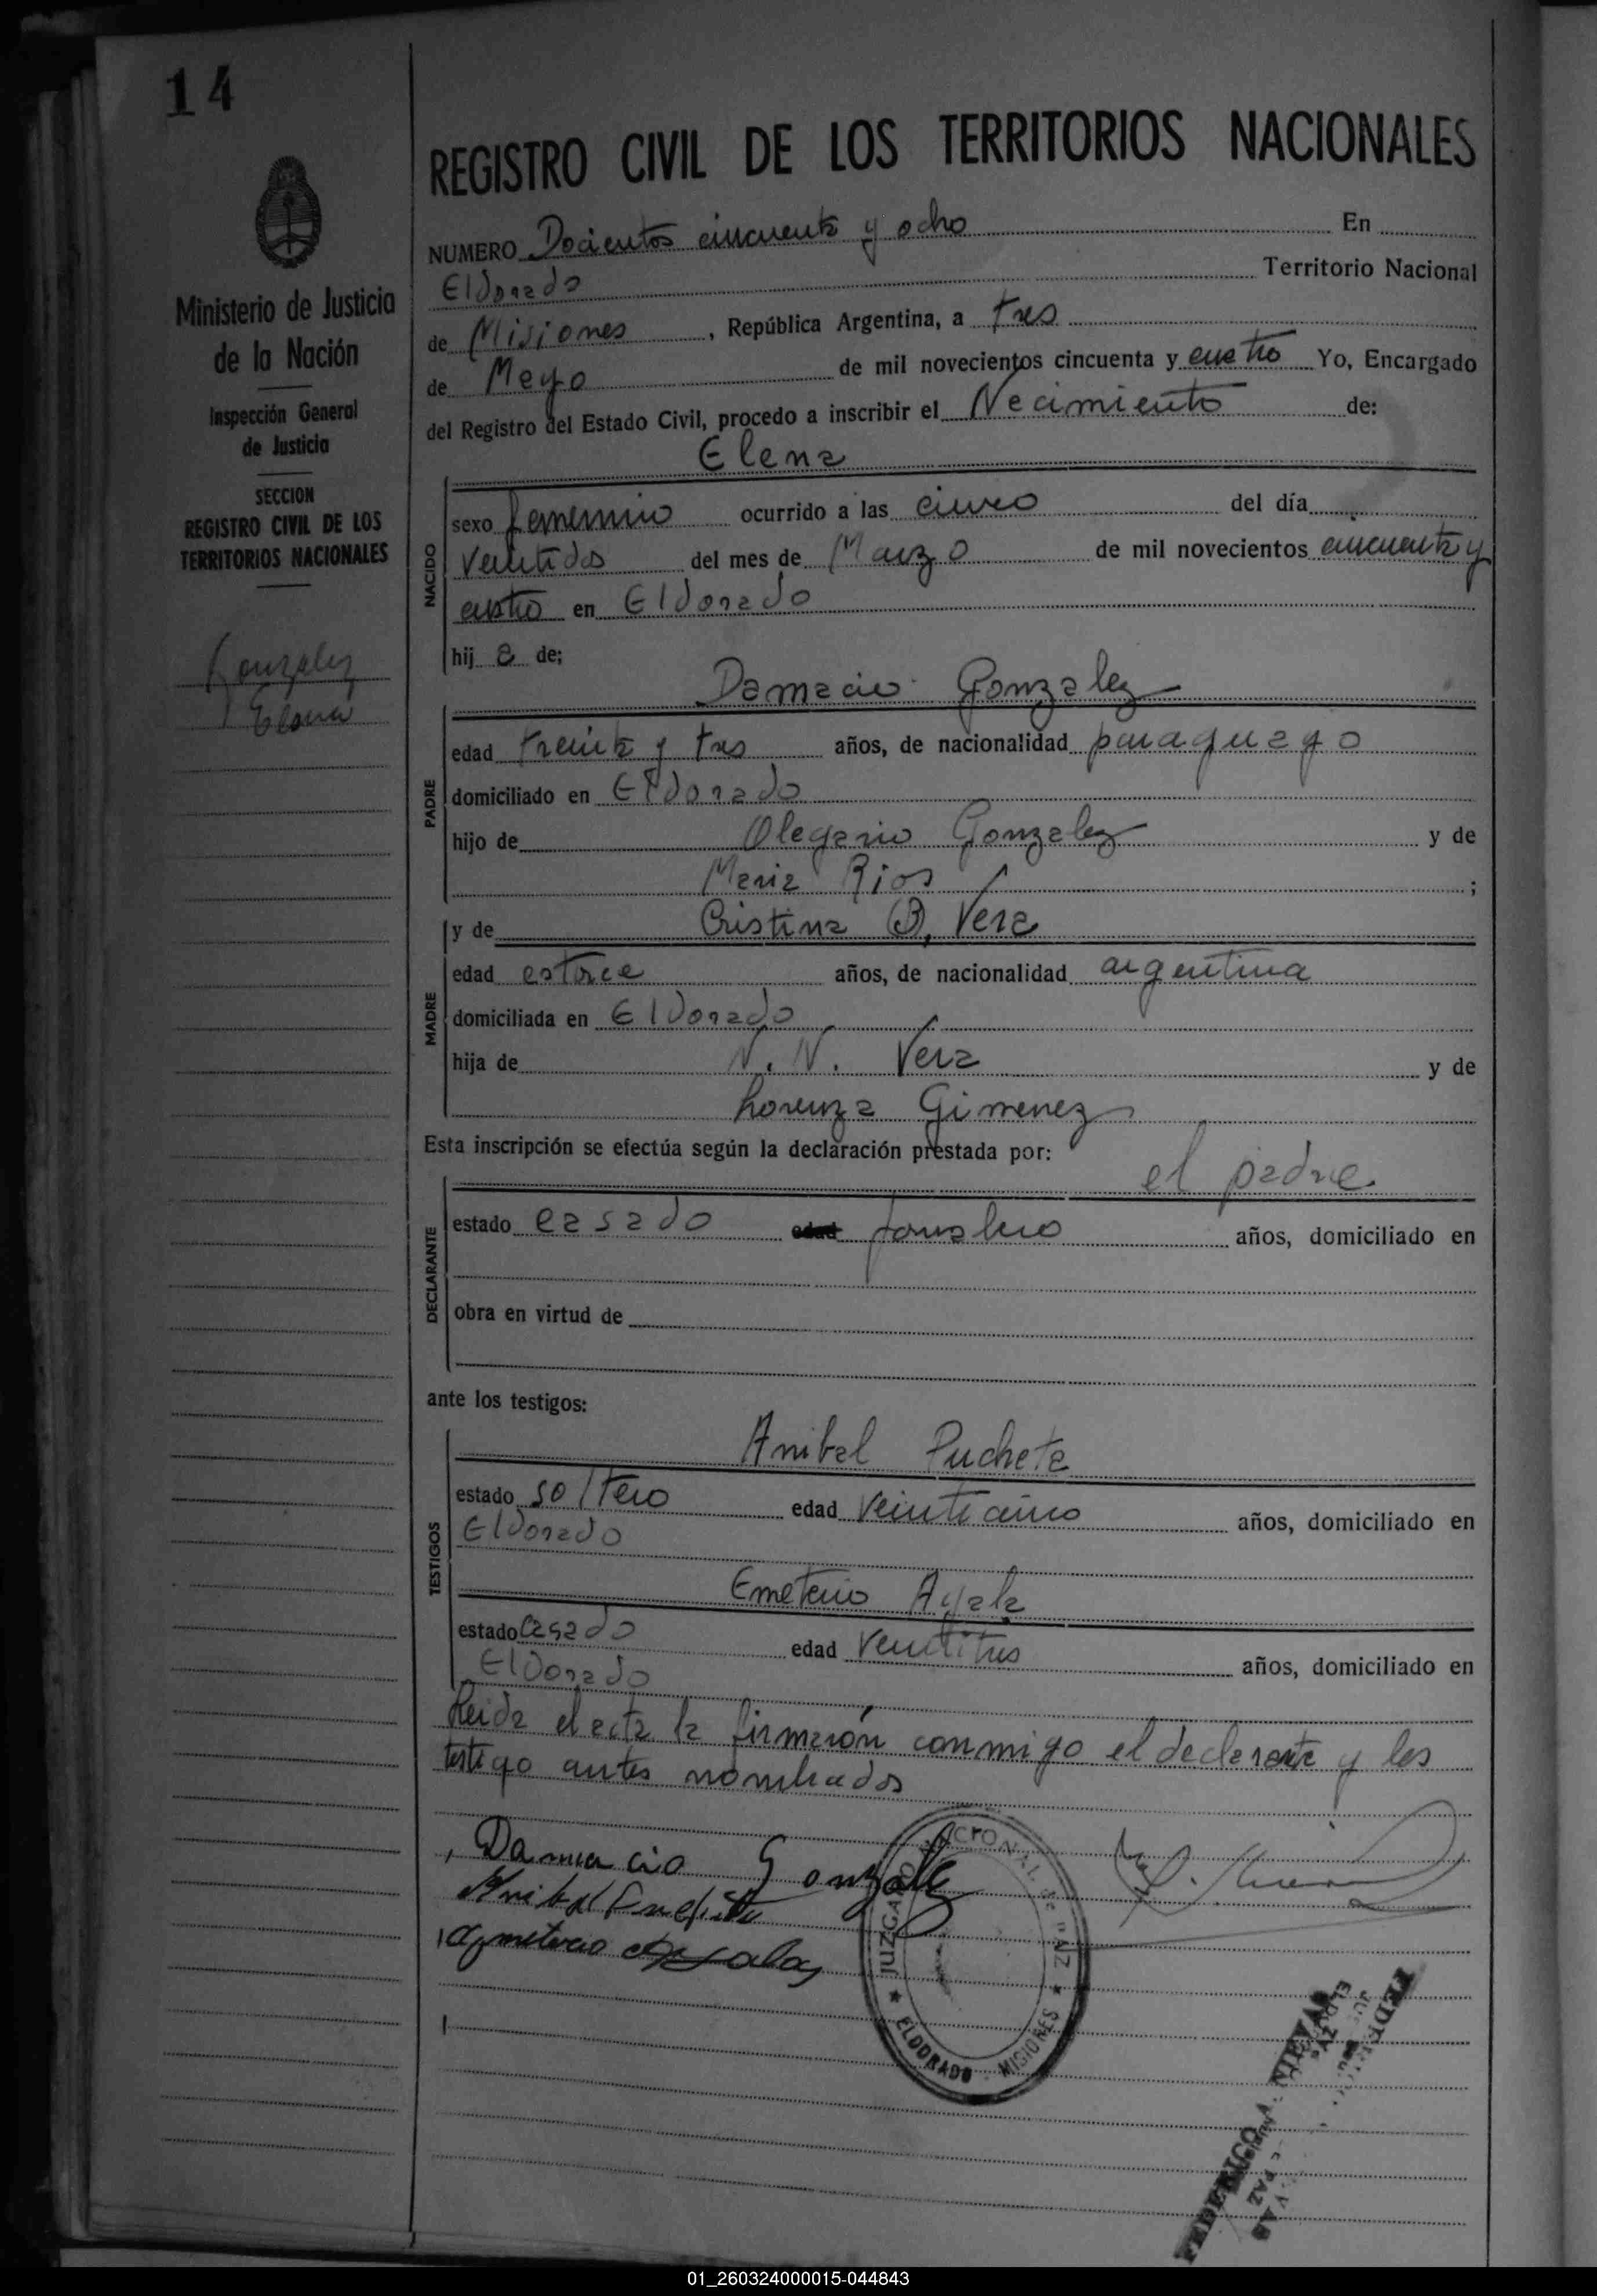 14
REGISTRO CIVIL DE LOS TERRITORIOS NACIONALES
NUMERO Docientos cincuenta y ocho En
Eldorado Territorio Nacional
de Misiones, República Argentina, a tres
de Mayo de mil novecientos cincuenta y cuatro Yo, Encargado
del Registro del Estado Civil, procedo a inscribir el Nacimiento de:
Elena
Ministerio de Justicia
de la Nación
Inspección General
de Justicia
SECCION
REGISTRO CIVIL DE LOS
TERRITORIOS NACIONALES
Gonzalez
Elena
NACIDO
sexo femenino ocurrido a las cinco del día
veintidos del mes de Marzo de mil novecientos cincuenta y
cuatro en Eldorado
hij a de;
Damacio Gonzalez
PADRE
edad treinta y tres años, de nacionalidad paraguayo
domiciliado en Eldorado
hijo de Olegario Gonzalez y de
Maria Rios ;
y de Cristina B. Vera
MADRE
edad catorce años, de nacionalidad argentina
domiciliada en Eldorado
hija de N. N. Vera y de
Lorenza Gimenez
Esta inscripción se efectúa según la declaración prestada por:
el padre.
DECLARANTE
estado casado edad años, domiciliado en
obra en virtud de
ante los testigos:
Anibal Pucheta
TESTIGOS
estado soltero edad veinticinco años, domiciliado en
Eldorado
Emeterio Ayala
estado casado edad veintitres años, domiciliado en
Eldorado
Leida el acta la firmarón conmigo el declarante y los
testigo antes nombrados
Damacio Gonzalez
Anibal
Ayala
JUZGADO NACIONAL DE PAZ
★ ELDORADO - MISIONES ★
FEDERICO
01_260324000015-044843